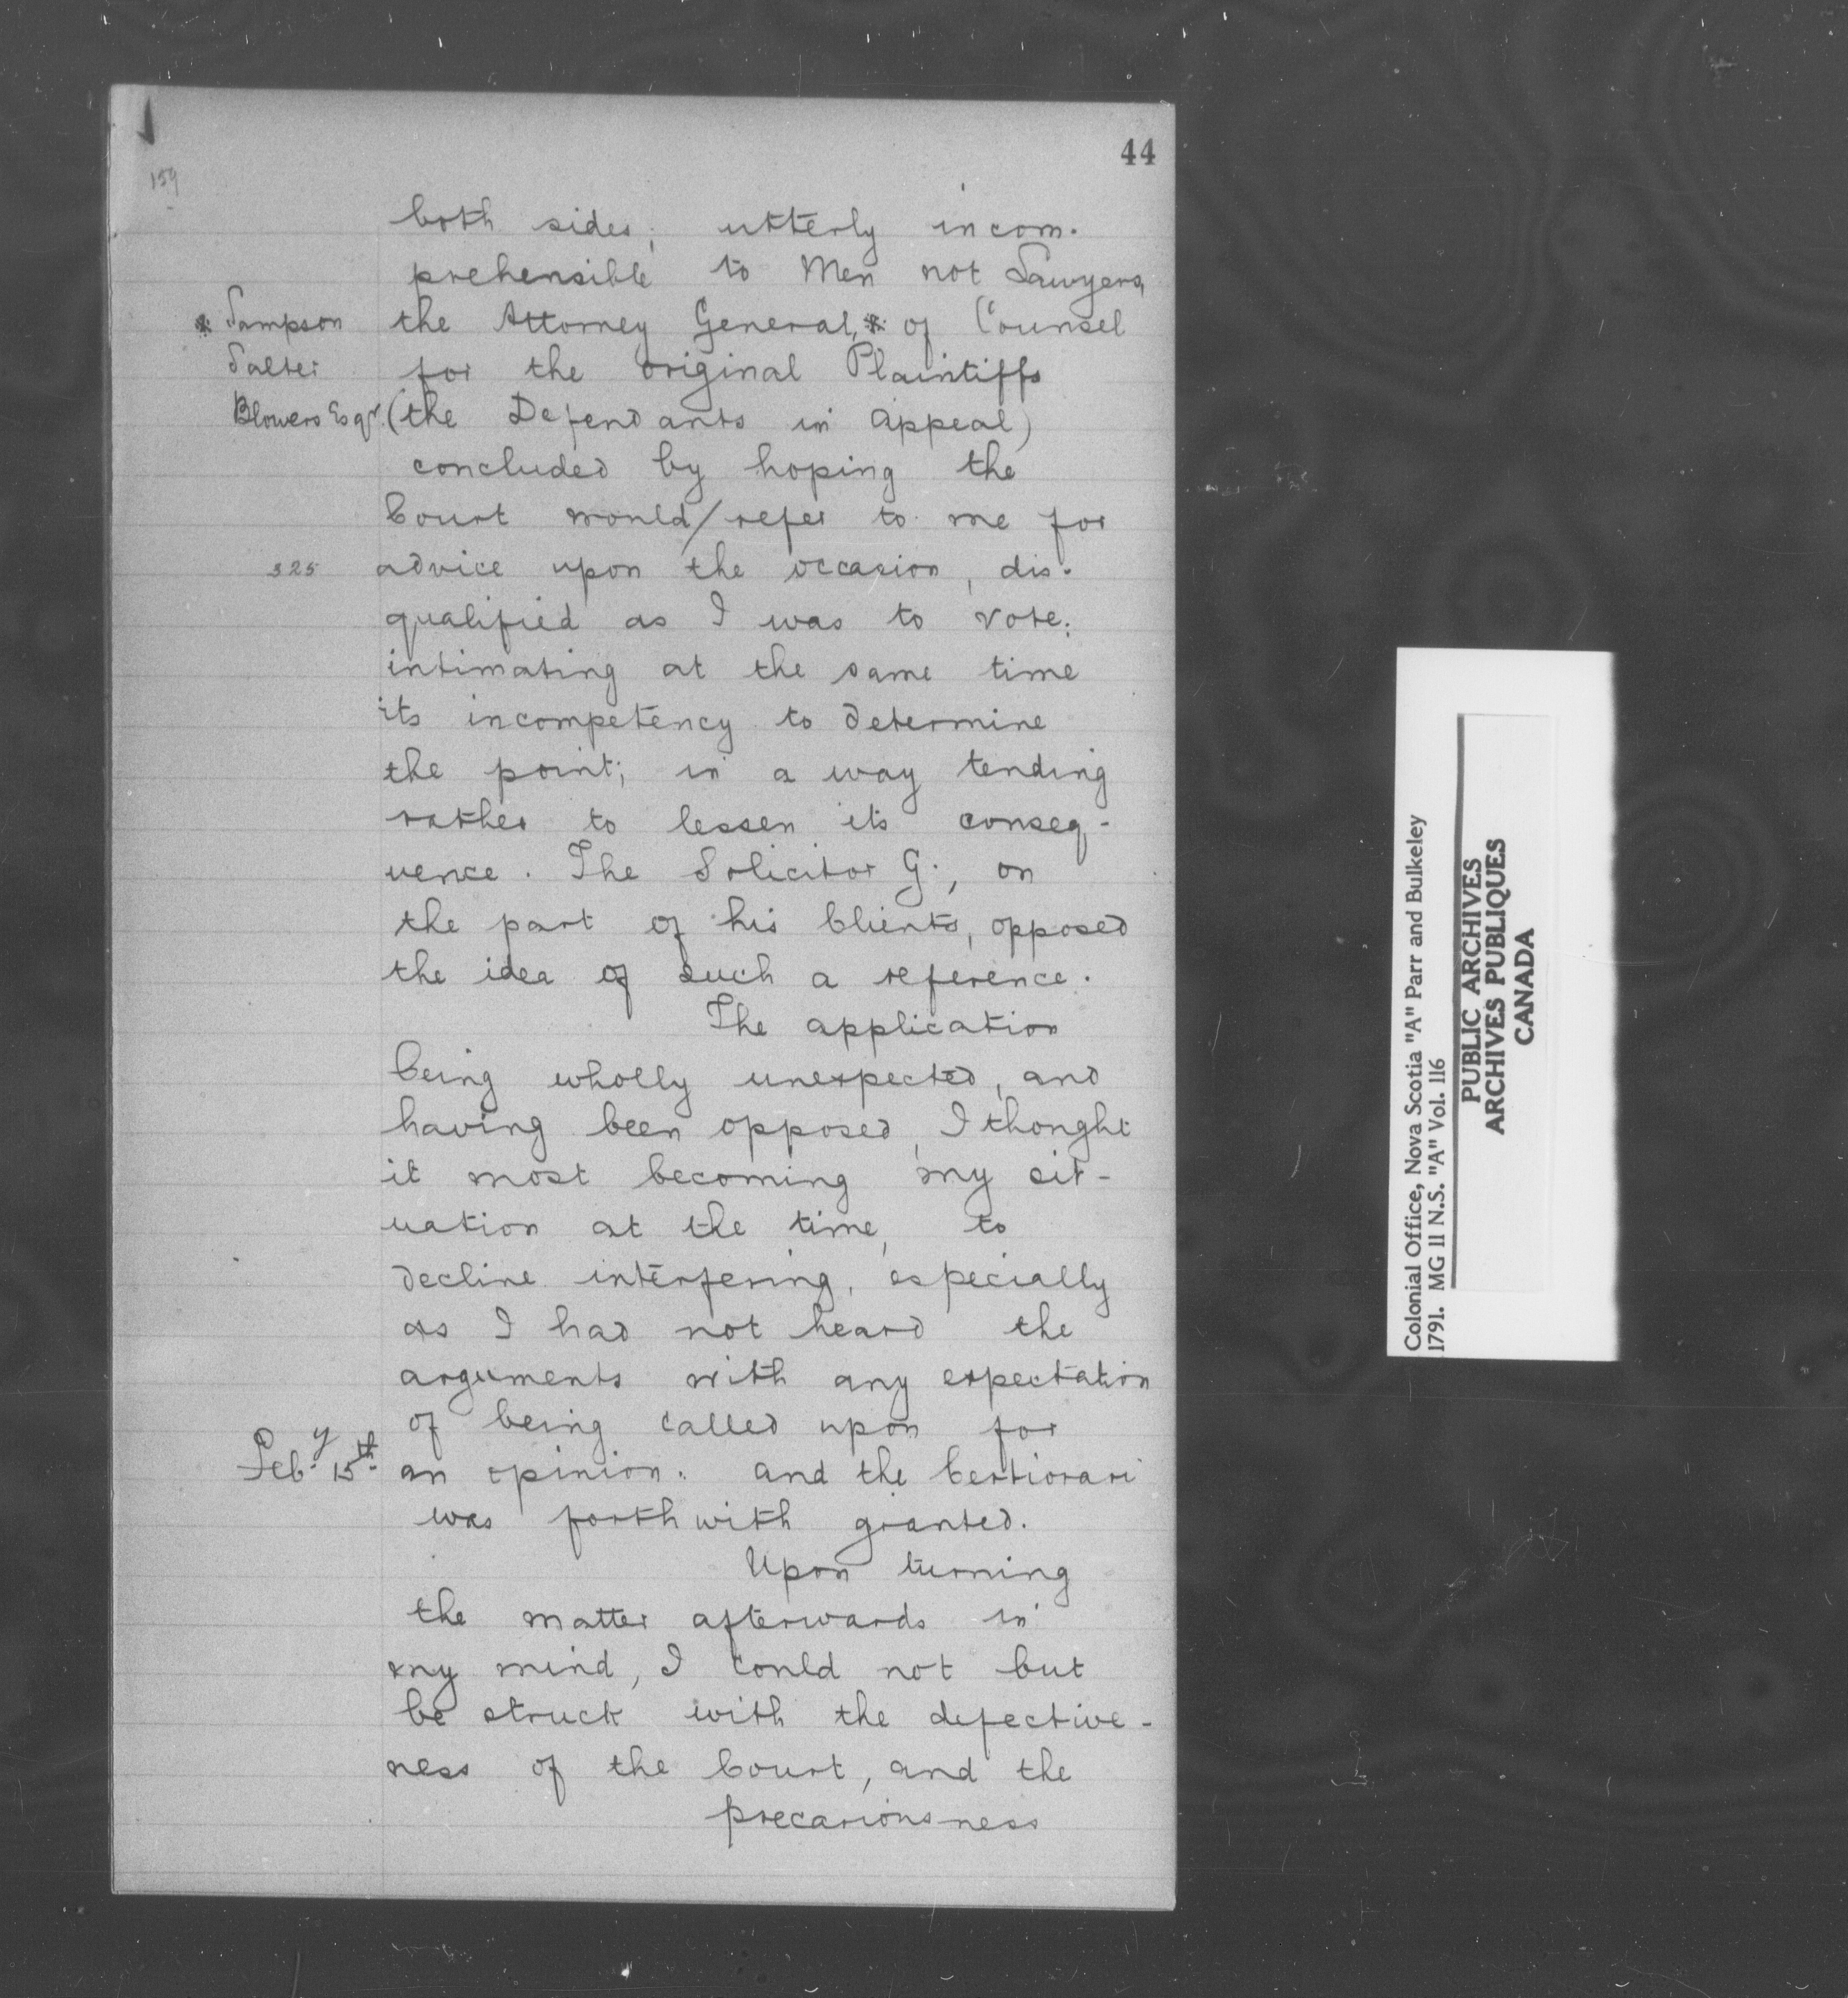 44
159
both sides; utterly incom-
prehensible to Men not Lawyers,
* Sampson the Attorney General,* of Counsel
Salter for the original Plaintiffs
Blowers Esqr. (the Defendants in appeal)
concluded by hoping the
Court would/refer to me for
325 advice upon the occasion, dis-
qualified as I was to vote;
intimating at the same time
its incompetency to determine
the point; in a way tending
rather to lessen its conseq-
uence. The Solicitor G., on
the part of his Clients, opposed
the idea of such a reference.
The application
being wholly unexpected, and
having been opposed, I thought
it most becoming my sit-
uation at the time, to
decline interfering, especially
as I had not heard the
arguments with any expectation
of being called upon for
Feb.y 15th. an opinion. and the Certiorari
was forthwith granted.
Upon turning
the matter afterwards in
my mind, I could not but
be struck with the defective-
ness of the Court, and the
precariousness
Colonial Office, Nova Scotia "A" Parr and Bulkeley
1791. MG 11 N.S. "A" Vol. 116
PUBLIC ARCHIVES
ARCHIVES PUBLIQUES
CANADA